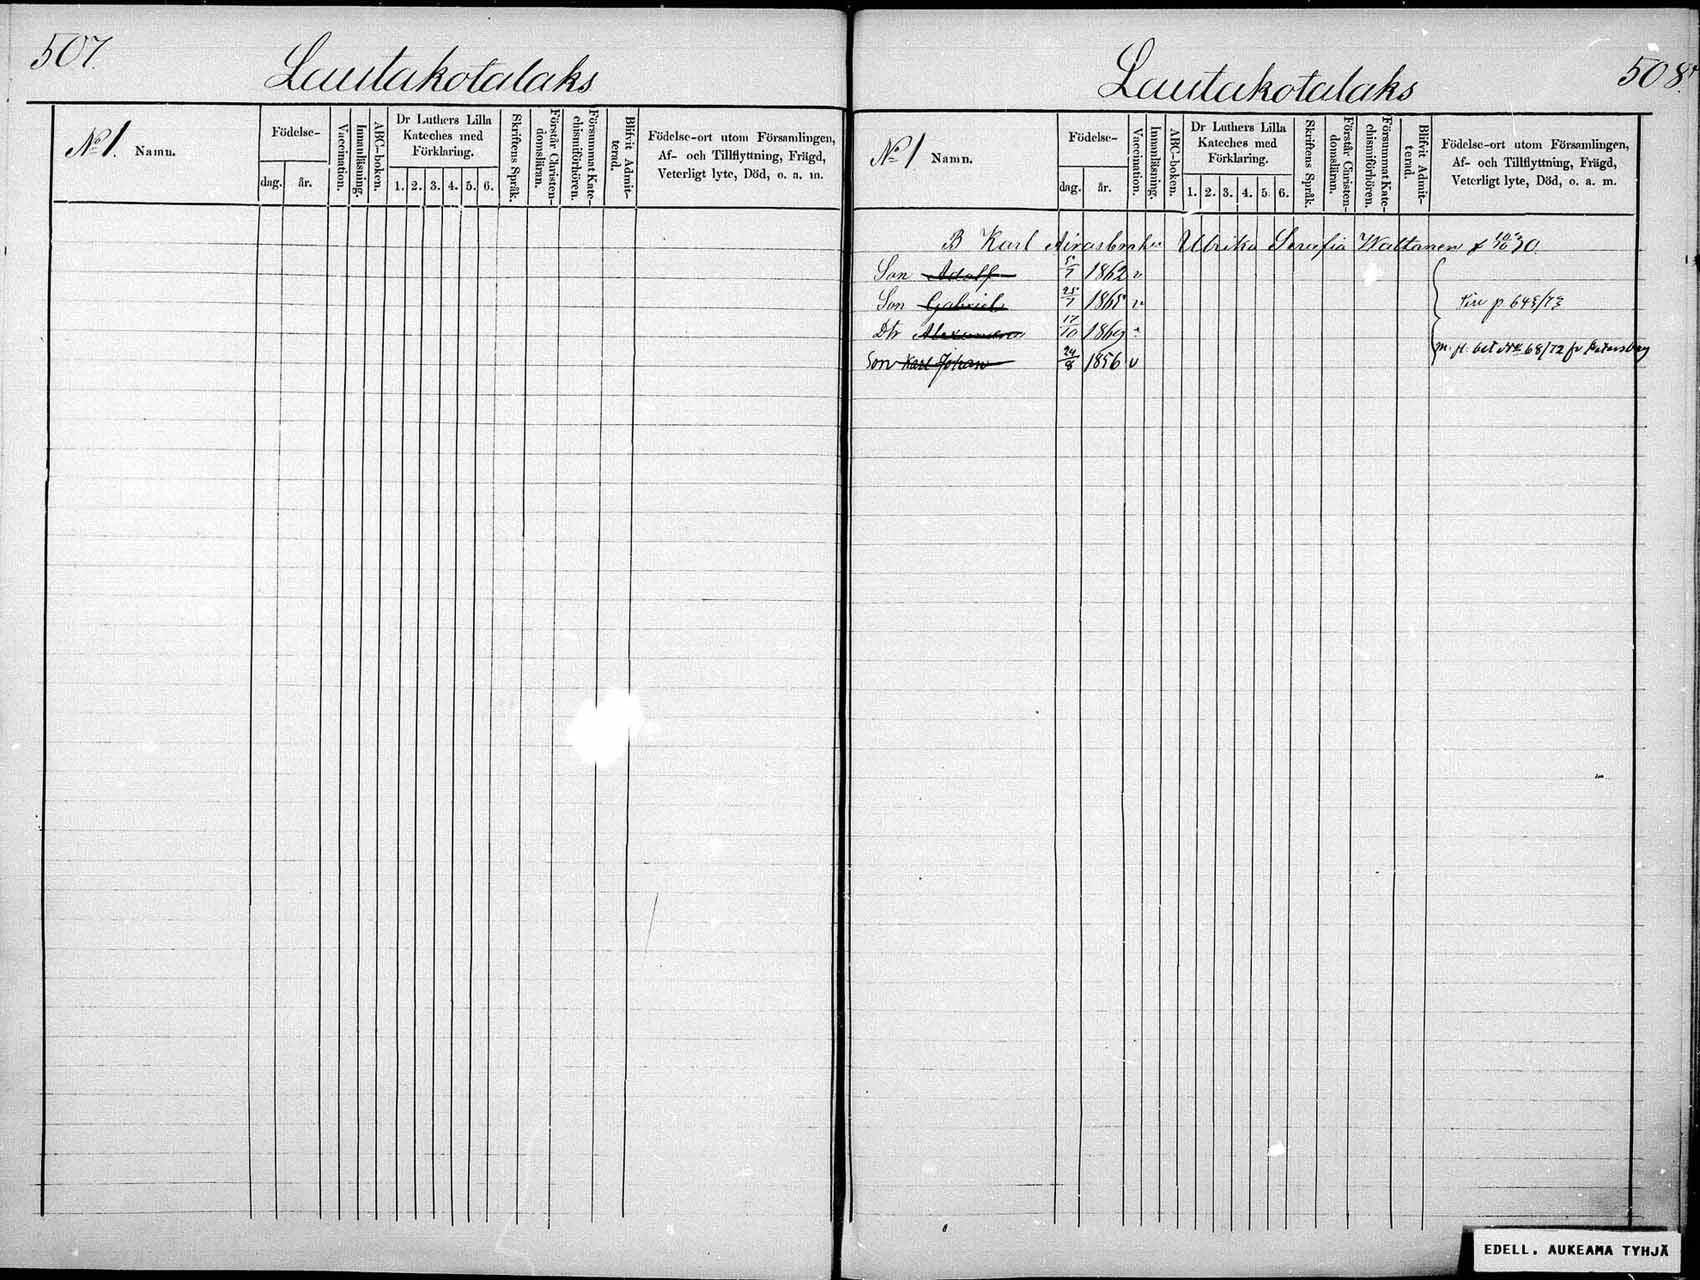 507.
Lautakotalaks
No 1. Namn.
Födelse-
dag. år.
Vaccination.
Innanläsning.
ABC-boken.
Dr Luthers Lilla
Kateches med
Förklaring.
1. 2. 3. 4. 5. 6.
Skriftens Språk.
Förstår Christen-
domsläran.
Försummat Kate-
chismiförhören.
Blifvit Admit-
terad.
Födelse-ort utom Församlingen,
Af- och Tillflyttning, Frägd,
Veterligt lyte, Död, o. a. m.
508.
Lautakotalaks
No 1 Namn.
Födelse-
dag. år.
Vaccination.
Innanläsning.
ABC-boken.
Dr Luthers Lilla
Kateches med
Förklaring.
1. 2. 3. 4. 5 6.
Skriftens Språk.
Förstår Christen-
domsläran.
Försummat Kate-
chismiförhören.
Blifvit Admit-
terad.
Födelse-ort utom Församlingen,
Af- och Tillflyttning, Frägd,
Veterligt lyte, Död, o. a. m.
B Karl Ulrika Serafia Wattanen
Son Adolf 5/7 1862 v
Son Gabriel 25/1 1865 v p 645/73
Dtr Alexandra 17/10 1869
Son Karl Johan 24/8 1856 v m. fl. bet No 68/72 fr Petersburg
EDELL. AUKEAMA TYHJÄ